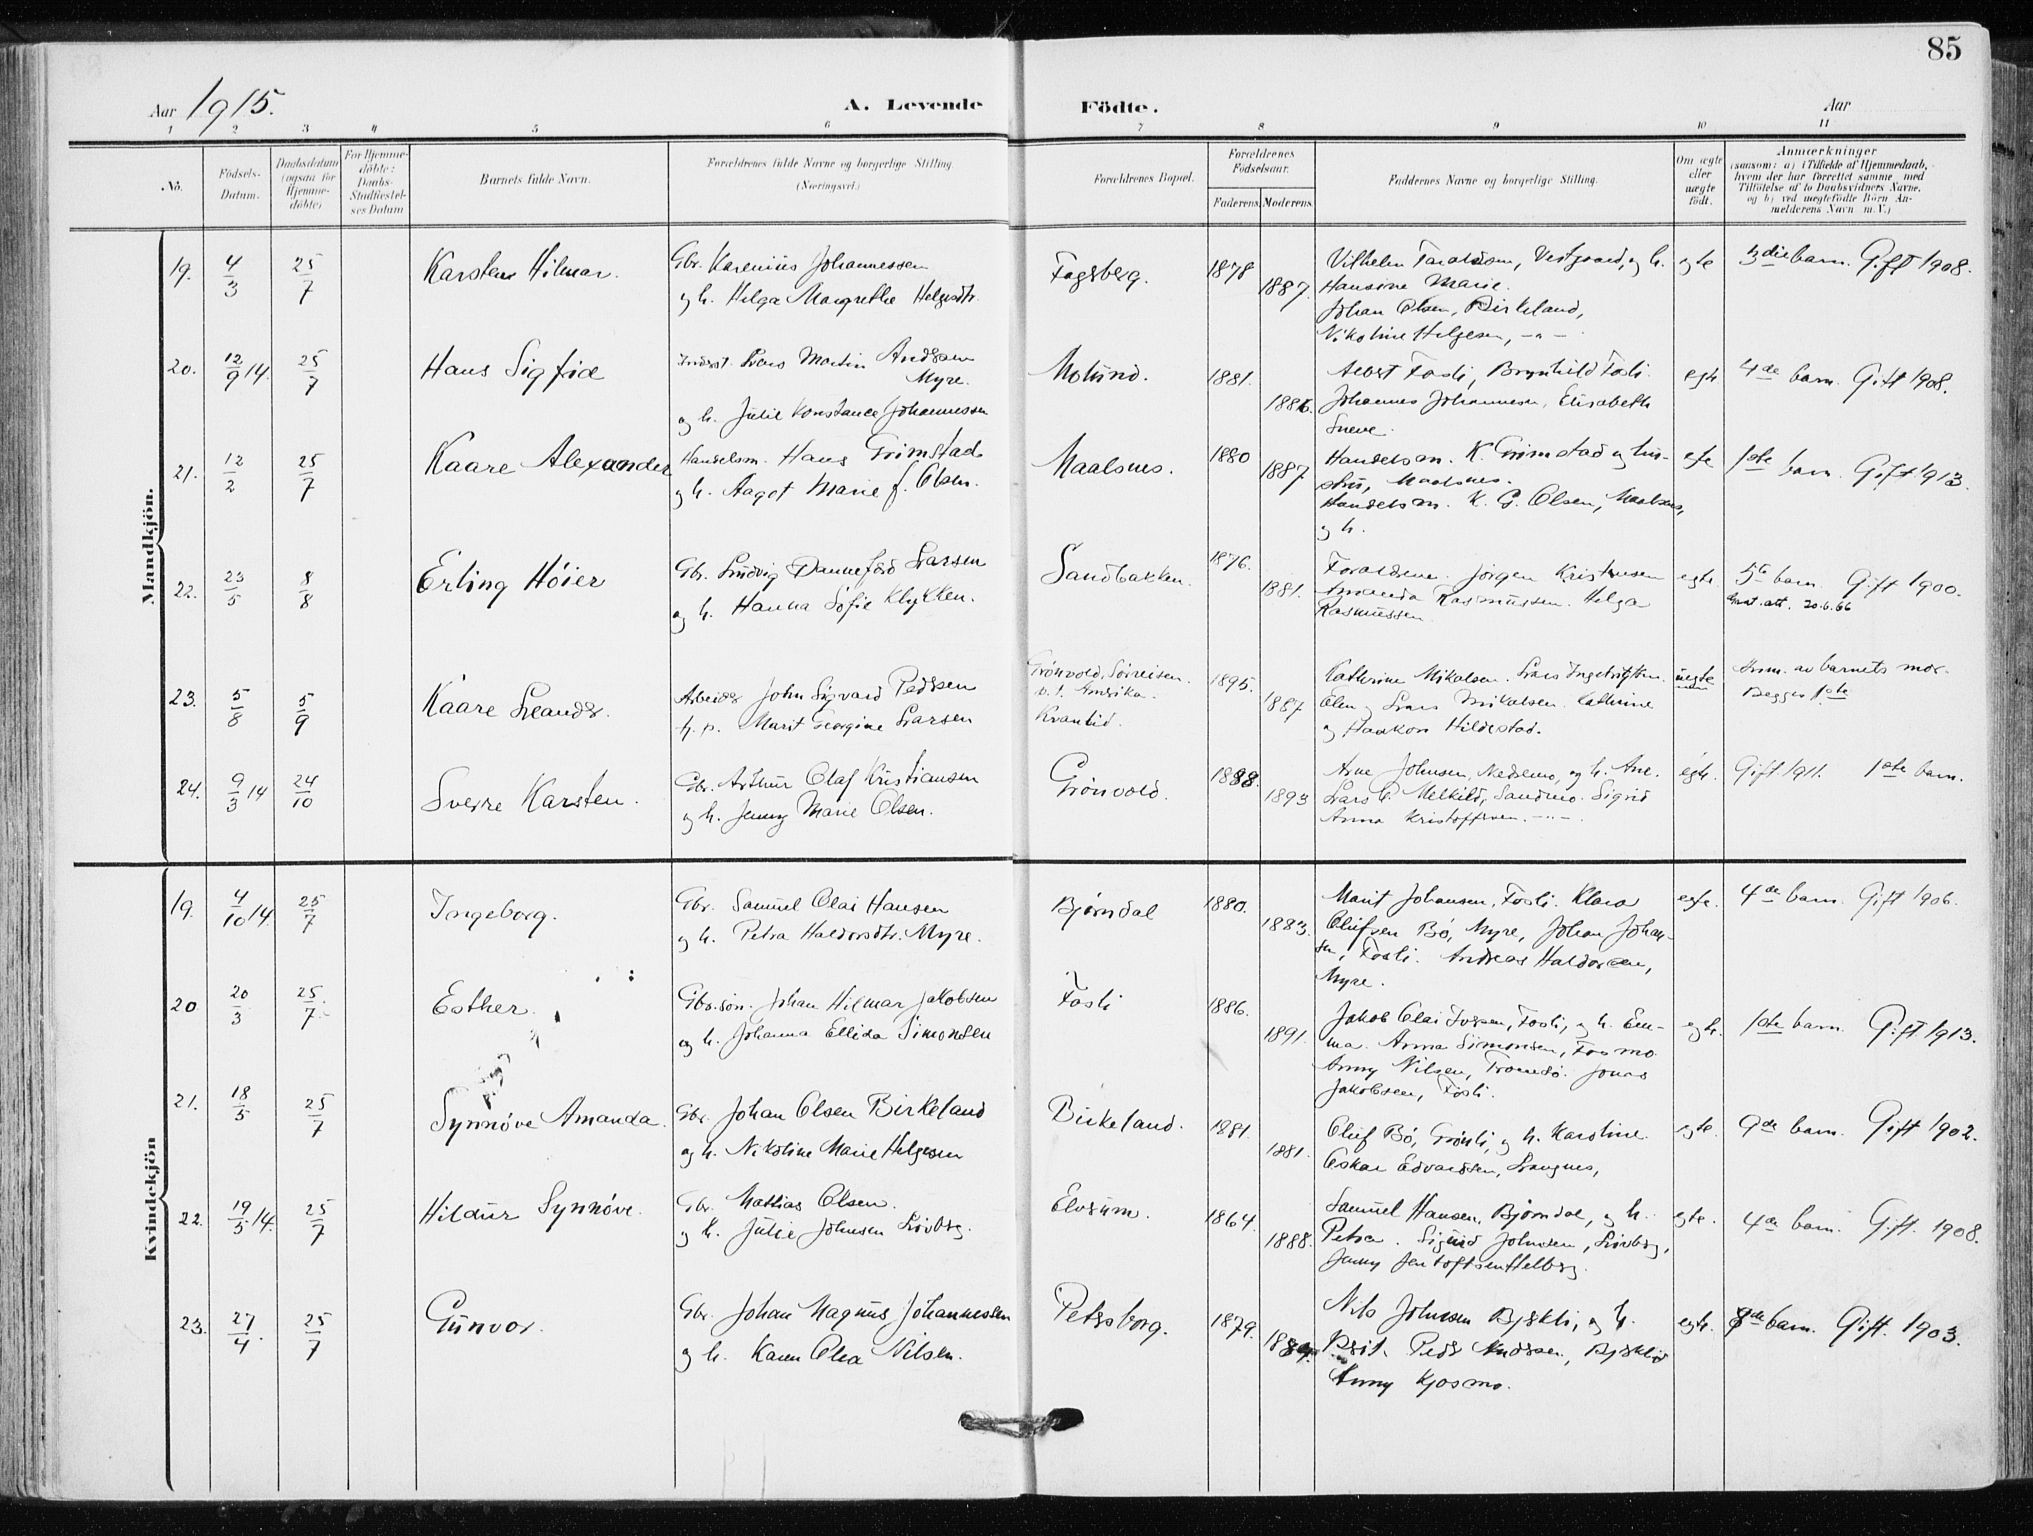 85
Aar 1915. A. Levende Födte. Aar
1 2 3 4 5 6 7 8 9 10 11
No.
Födsels-
Datum.
Daabsdatum
(ogsaa for
Hjemme-
döbte)
For Hjemme-
döbte:
Daabs-
Stadfæstel-
ses Datum
Barnets fulde Navn.
Forældrenes fulde Navne og borgerlige Stilling.
(Næringsvei.)
Forældrenes Bopæl.
Forældrenes
Fødselsaar.
Faderens. Moderens.
Faddernes Navne og borgerlige Stilling.
Om ægte
eller
uægte
født.
Anmærkninger
(saasom: a) i Tilfælde af Hjemmedaab,
hvem der har forrettet samme med
Tilföielse af to Daabsvidners Navne,
og b) ved uægtefödte Börn An-
melderens Navn m.V.)
Mandkjön.
19. 4/3 25/7 Karsten Hilmar. Gbr. Karenius Johannessen
og h. Helga Margrethe Helgesdtr.
Fagsberg. 1878 1887.
Vilhelm Taraldsen, Vestgaard, og h.
Hansine Marie.
Johan Olsen, Birkeland,
Nikoline Helgesen, -"-
egte 3die barn. Gift 1908.
20. 12/9 14. 25/7 Hans Sigfrid Inderst. Lars Martin Andersen
Myre.
og h. Julie Konstance Johannessen
Molund. 1881. 1886.
Albert Fosli, Brynhild Fosli.
Johannes Johannesen, Elisabeth
Sneve.
egte 4de barn. Gift 1908.
21. 12/2 25/7 Kaare Alexander Handelsm. Hans Grimstad
og h. Aagot Marie f. Olsen.
Maalsnes. 1880 1887
Handelsm. K. Grimstad og hus-
tru, Maalsnes.
Handelsm. K. G. Olsen, Maalsnes,
og h.
egte 1ste barn. Gift 1913.
22. 23/5 8/8 Erling Höier Gbr. Ludvig Danneford Larsen
og h. Hanna Sofie Klykken.
Sandbakken. 1876. 1881.
Forældrene. Jørgen Kristensen
Amanda Rasmussen. Helga
Rasmussen
egte. 5te barn. Gift 1900.
att. 20.6.66
23. 5/8 5/9 Kaare Leander. Arbeider John Sigvard Pedersen
h. p. Marit Georgine Larsen
Grönvold, Sörreisen.
p.t. Amerika.
Kvantid.
1895. 1887
Kathrine Mikalsen. Lars Ingebrigtsen.
Elen og Lars Mikalsen. Cathrine
og Haakon Hildestad.
uegte Anm. av barnets mor.
Begges 1ste
24. 9/3 14 24/10 Sverre Karsten. Gbr. Arthur Olaf Kristiansen
og h. Jenny Marie Olsen.
Grönvold. 1888. 1893
Arne Johnsen, Nedremo, og h. Ane.
Lars C. Melkild, Sandmo. Sigrid
Anna Kristoffersen. -"-
egte. Gift 1911. 1ste barn.
Kvindekjön
19. 4/10 14. 25/7 Ingeborg. Gbr. Samuel Olai Hansen
og h. Petra Haldorsdtr. Myre.
Bjørndal 1880. 1883.
Marit Johansen, Fosli. Klara
Olufsen Bö, Myre, Johan Johan-
sen, Fosli. Andreas Haldorsen,
Myre.
egte. 4de barn. Gift 1906.
20 20/3 25/7 Esther. Gbr.sön. Johan Hilmar Jakobsen
og h. Johanna Ellida Simonsen
Fosli 1886. 1891.
Jakob Olai Iversen, Fosli, og h. Em-
ma. Anna Simonsen, Fosmo
Anny Nilsen, Tromsö. Jonas
Jakobsen, Fosli.
egte. 1ste barn. Gift 1913.
21. 18/5 25/7 Synnöve Amanda. Gbr. Johan Olsen Birkeland
og h. Nikoline Marie Helgesen
Birkeland. 1881. 1881.
Oluf Bö, Grönli, og h. Karoline.
Oskar Edvardsen, Langnes,
egte. 9de barn. Gift 1902.
22. 19/5 14. 25/7 Hildur Synnöve. Gbr. Mathias Olsen.
og h. Julie Johnsen Lövberg.
Elvrum. 1864. 1888.
Samuel Hansen, Bjørndal, og h.
Petra. Sigurd Johnsen, Lövberg,
Jenny Jentoftsen Helberg.
egte. 4de barn. Gift. 1908.
23. 27/4. 25/7 Gunvor. Gbr. Johan Magnus Johannessen
og h. Karen Olea Nilsen.
Petersborg. 1879.
Nils Johnsen Bjerkli, og h.
Berit. Peder Andersen, Bjerklid
Anny Kjosmo.
egte. 8de barn. Gift. 1903.